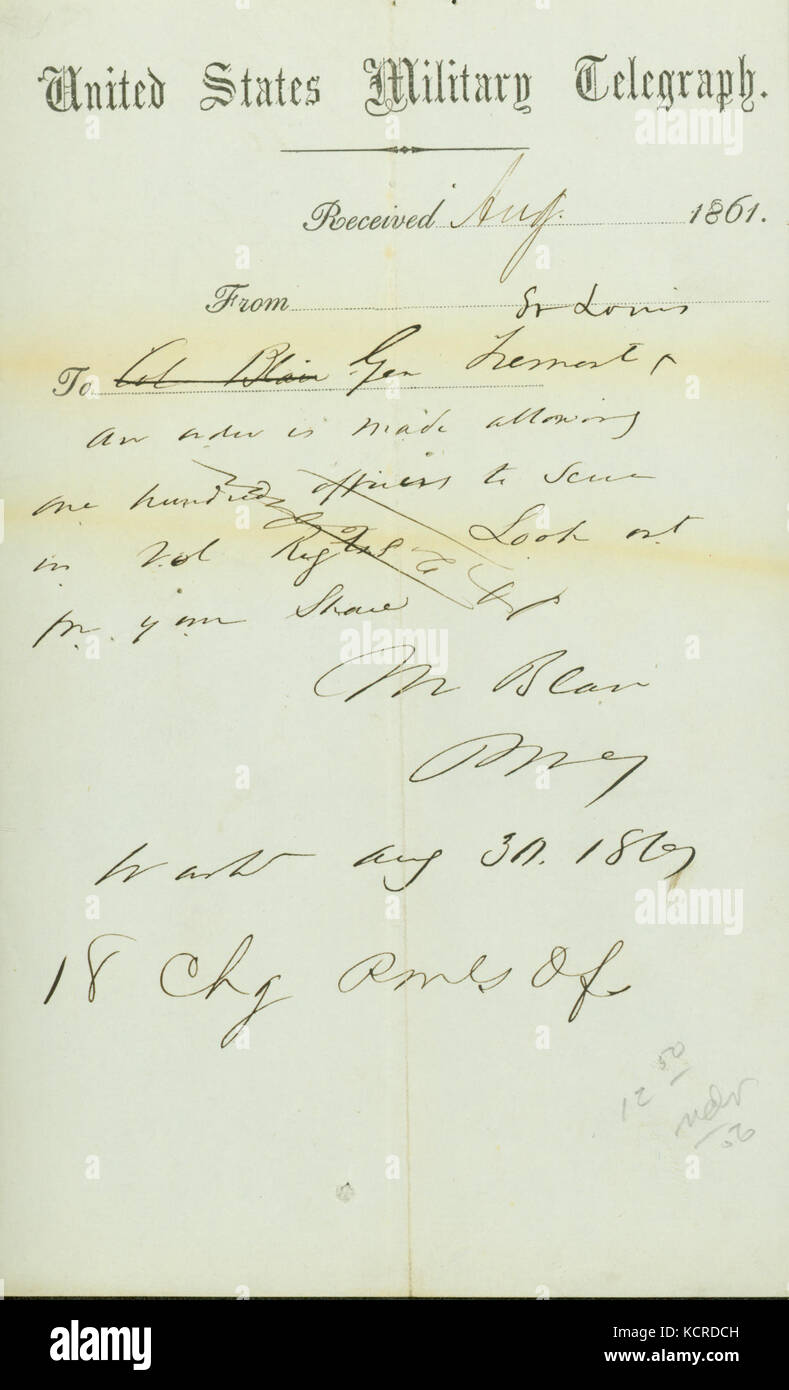 United States Military Telegraph.
Received Aug. 1861.
From St Louis
To Col Blair Gen Fremont
An order is made allowing
one hundred officers to serve
in Vol Regts Look out
for your share
M Blair
Wash Aug 30. 1861
18 Chg
12 50
50
alamy
Image ID: KCRDCH
www.alamy.com